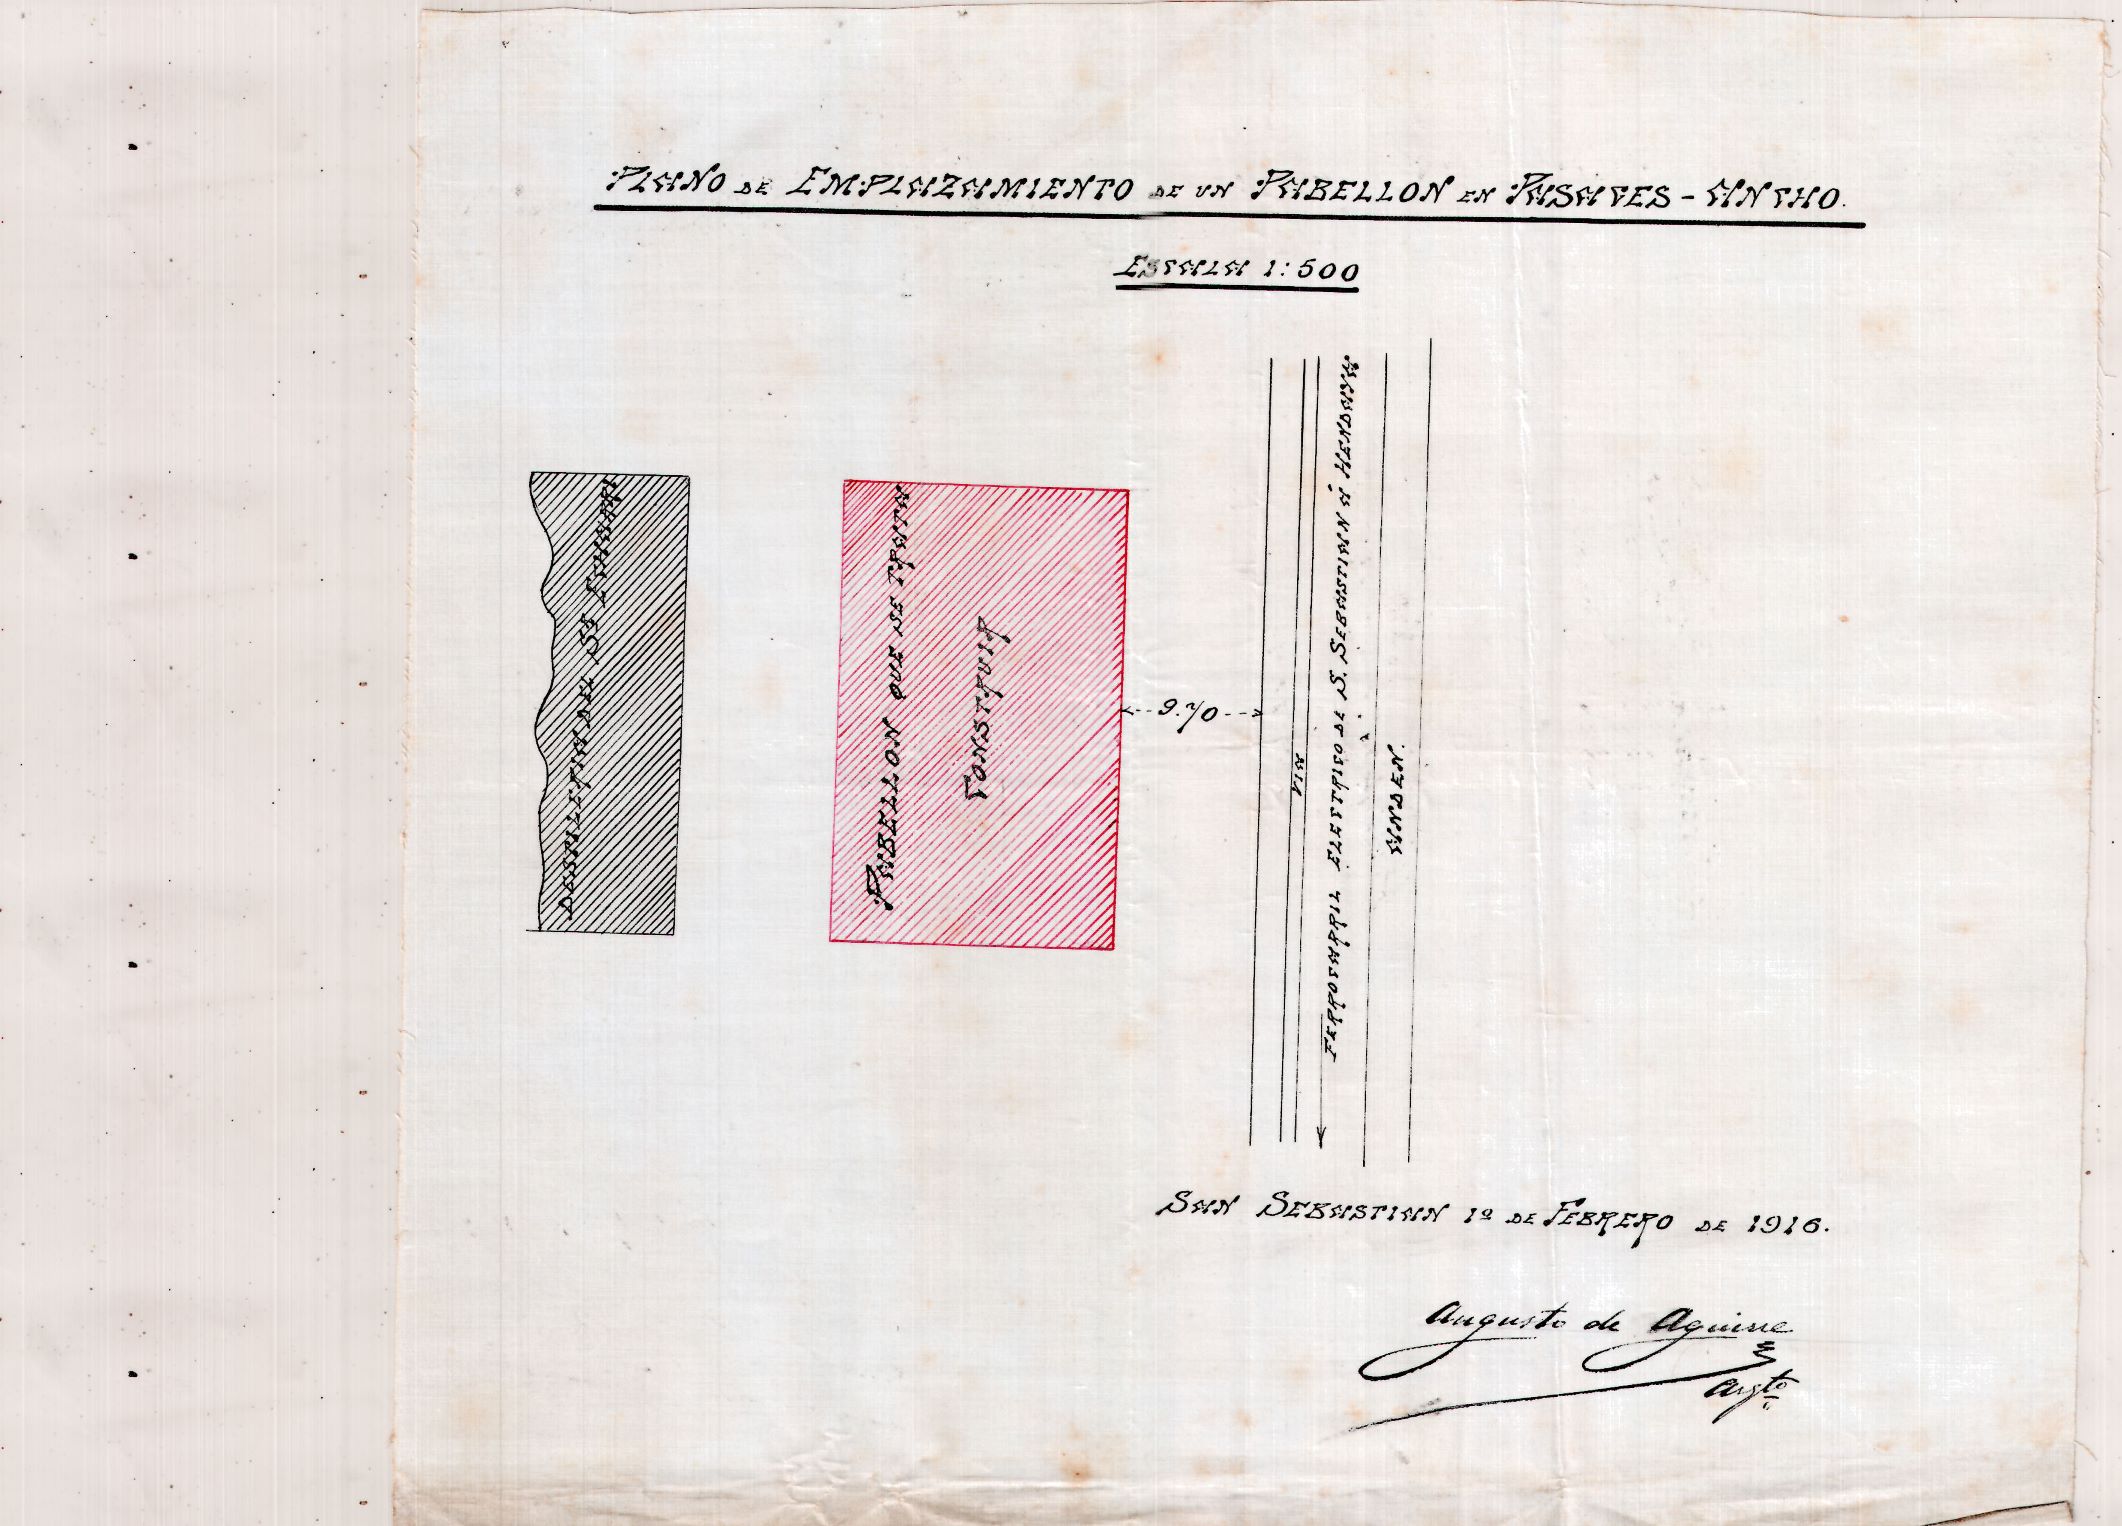 PLANO DE EMPLAZAMIENTO DE UN PABELLON EN PASAGES - ANCHO.
ESCALA 1:500
DESTILERIA DE SE CHARRI
PABELLON QUE SE TRATA
CONSTRUIR
9.70
VIA
FERROCARRIL ELECTRICO DE S. SEBASTIAN A HENDAYA
ANDEN.
SAN SEBASTIAN 1º DE FEBRERO DE 1916.
Augusto de Aguirre
Arqto